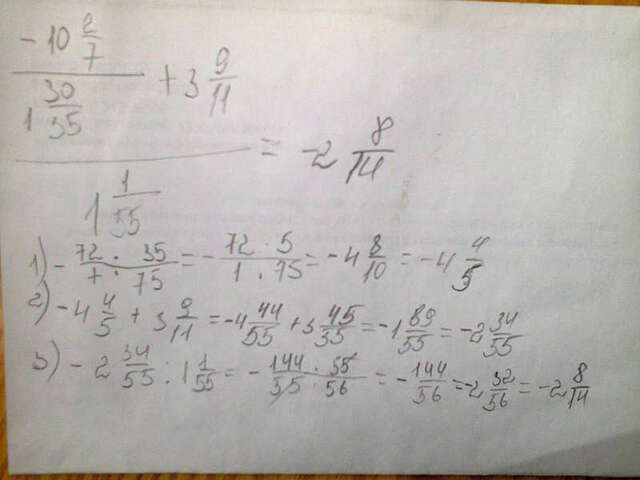 -10 2/7
1 30/35
+ 3 9/11
1 1/55
= -2 8/14
1) - 72 · 35 / 7 · 75 = - 72 · 5 / 1 · 75 = -4 8/10 = -4 4/5
2) -4 4/5 + 3 9/11 = -4 44/55 + 3 45/55 = -1 89/55 = -2 34/55
3) -2 34/55 : 1 1/55 = - 144 · 55 / 55 · 56 = - 144/56 = -2 32/56 = -2 8/14